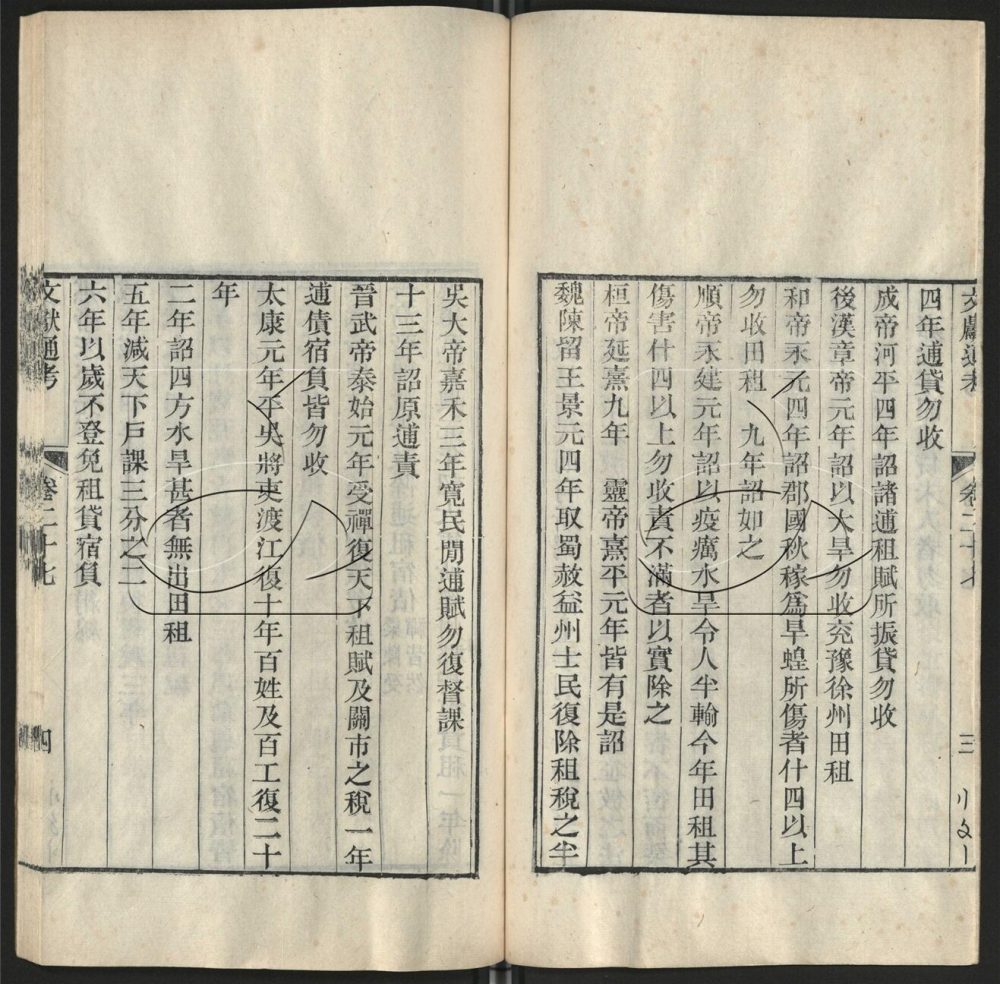 文獻通考 卷二十七 三
四年逋貸勿收
成帝河平四年詔諸逋租賦所振貸勿收
後漢章帝元年詔以大旱勿收兗豫徐州田租
和帝永元四年詔郡國秋稼爲旱蝗所傷者什四以上
勿收田租 九年詔如之
順帝永建元年詔以疫癘水旱令人半輸今年田租其
傷害什四以上勿收責不滿者以實除之
桓帝延熹九年 靈帝熹平元年皆有是詔
魏陳留王景元四年取蜀赦益州士民復除租稅之半
吳大帝嘉禾三年寬民閒逋賦勿復督課
十三年詔原逋責
晉武帝泰始元年受禪復天下租賦及關市之稅一年
逋債宿負皆勿收
太康元年平吳將吏渡江復十年百姓及百工復二十
年
二年詔四方水旱甚者無出田租
五年減天下戶課三分之二
六年以歲不登免租貸宿負
文獻通考 卷二十七 四